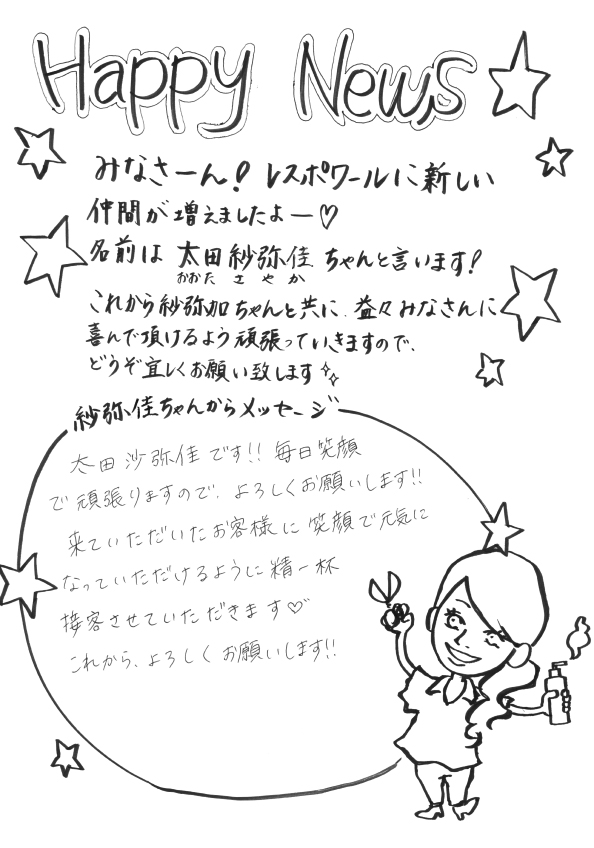 Happy News
みなさーん！レスポワールに新しい
仲間が増えましたよー♡
名前は 太田紗弥佳 ちゃんと言います！
おおた さ や か
これから紗弥加ちゃんと共に、益々みなさんに
喜んで頂けるよう頑張っていきますので、
どうぞ宜しくお願い致します
紗弥佳ちゃんからメッセージ
太田沙弥佳です!! 毎日笑顔
で頑張りますので、よろしくお願いします!!
来ていただいたお客様に笑顔で元気に
なっていただけるように精一杯
接客させていただきます♡
これから、よろしくお願いします!!